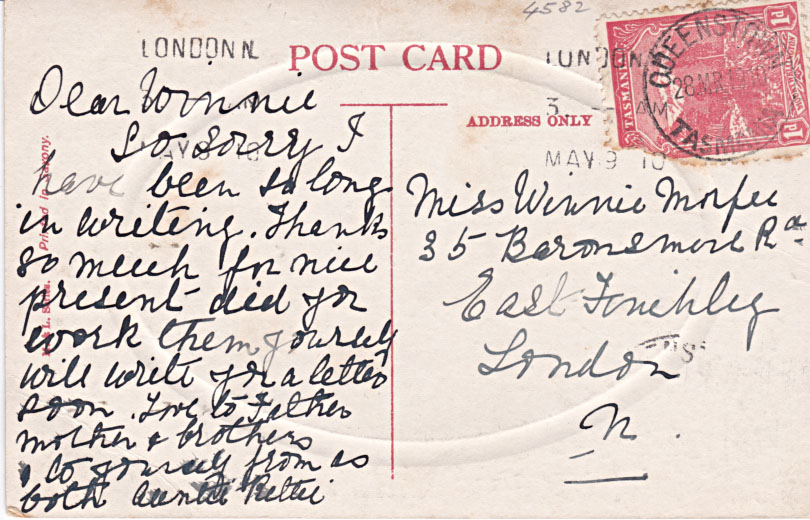 4582
LONDON.N.
POST CARD
LONDON.
3 AM
ADDRESS ONLY
MAY 9 10
QUEENSTOWN
28 MR 10
TASMANIA
TASMANIA
1D
1D
Dear Winnie
So sorry I
have been so long
in writing. Thanks
so much for nice
present did you
work them yourself
will write you a letter
soon. Love to Father
mother & brothers
& to yourself from us
both Auntie
Miss Winnie Morfee
35 Baronsmere Rd
East Finchley
London
N.
Printed in Saxony.